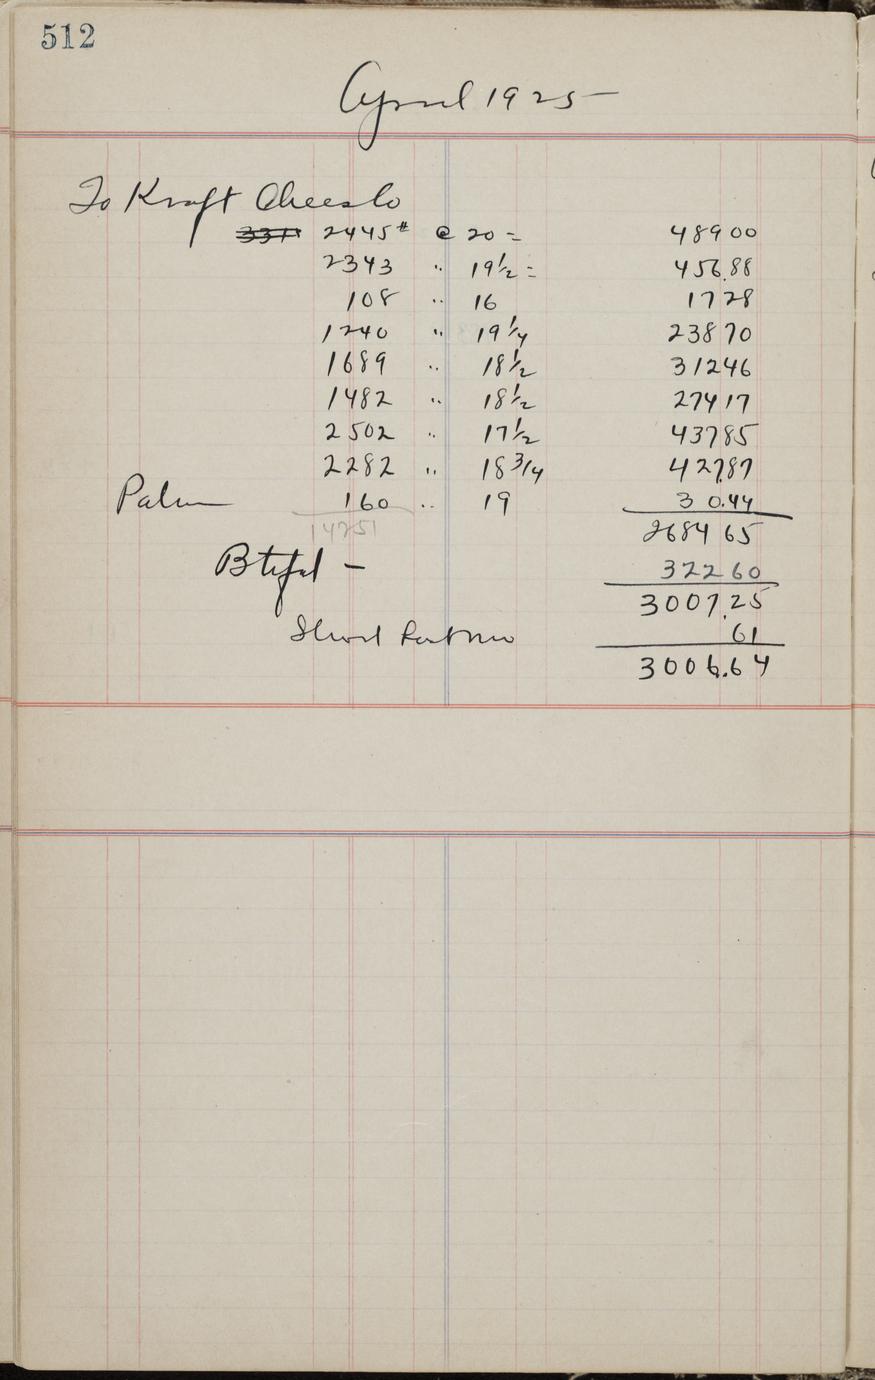 512
April 1925
To Kraft Cheese Co
2445# @ 20 = 489 00
2343 " 19 1/2 = 456.88
108 " 16 17 28
1240 " 19 1/4 238 70
1689 " 18 1/2 312 46
1482 " 18 1/2 274 17
2502 " 17 1/2 437 85
2282 " 18 3/4 427.87
160 " 19 30.44
14251 2684 65
Btfal - 322 60
3007.25
Short 61
3006.64